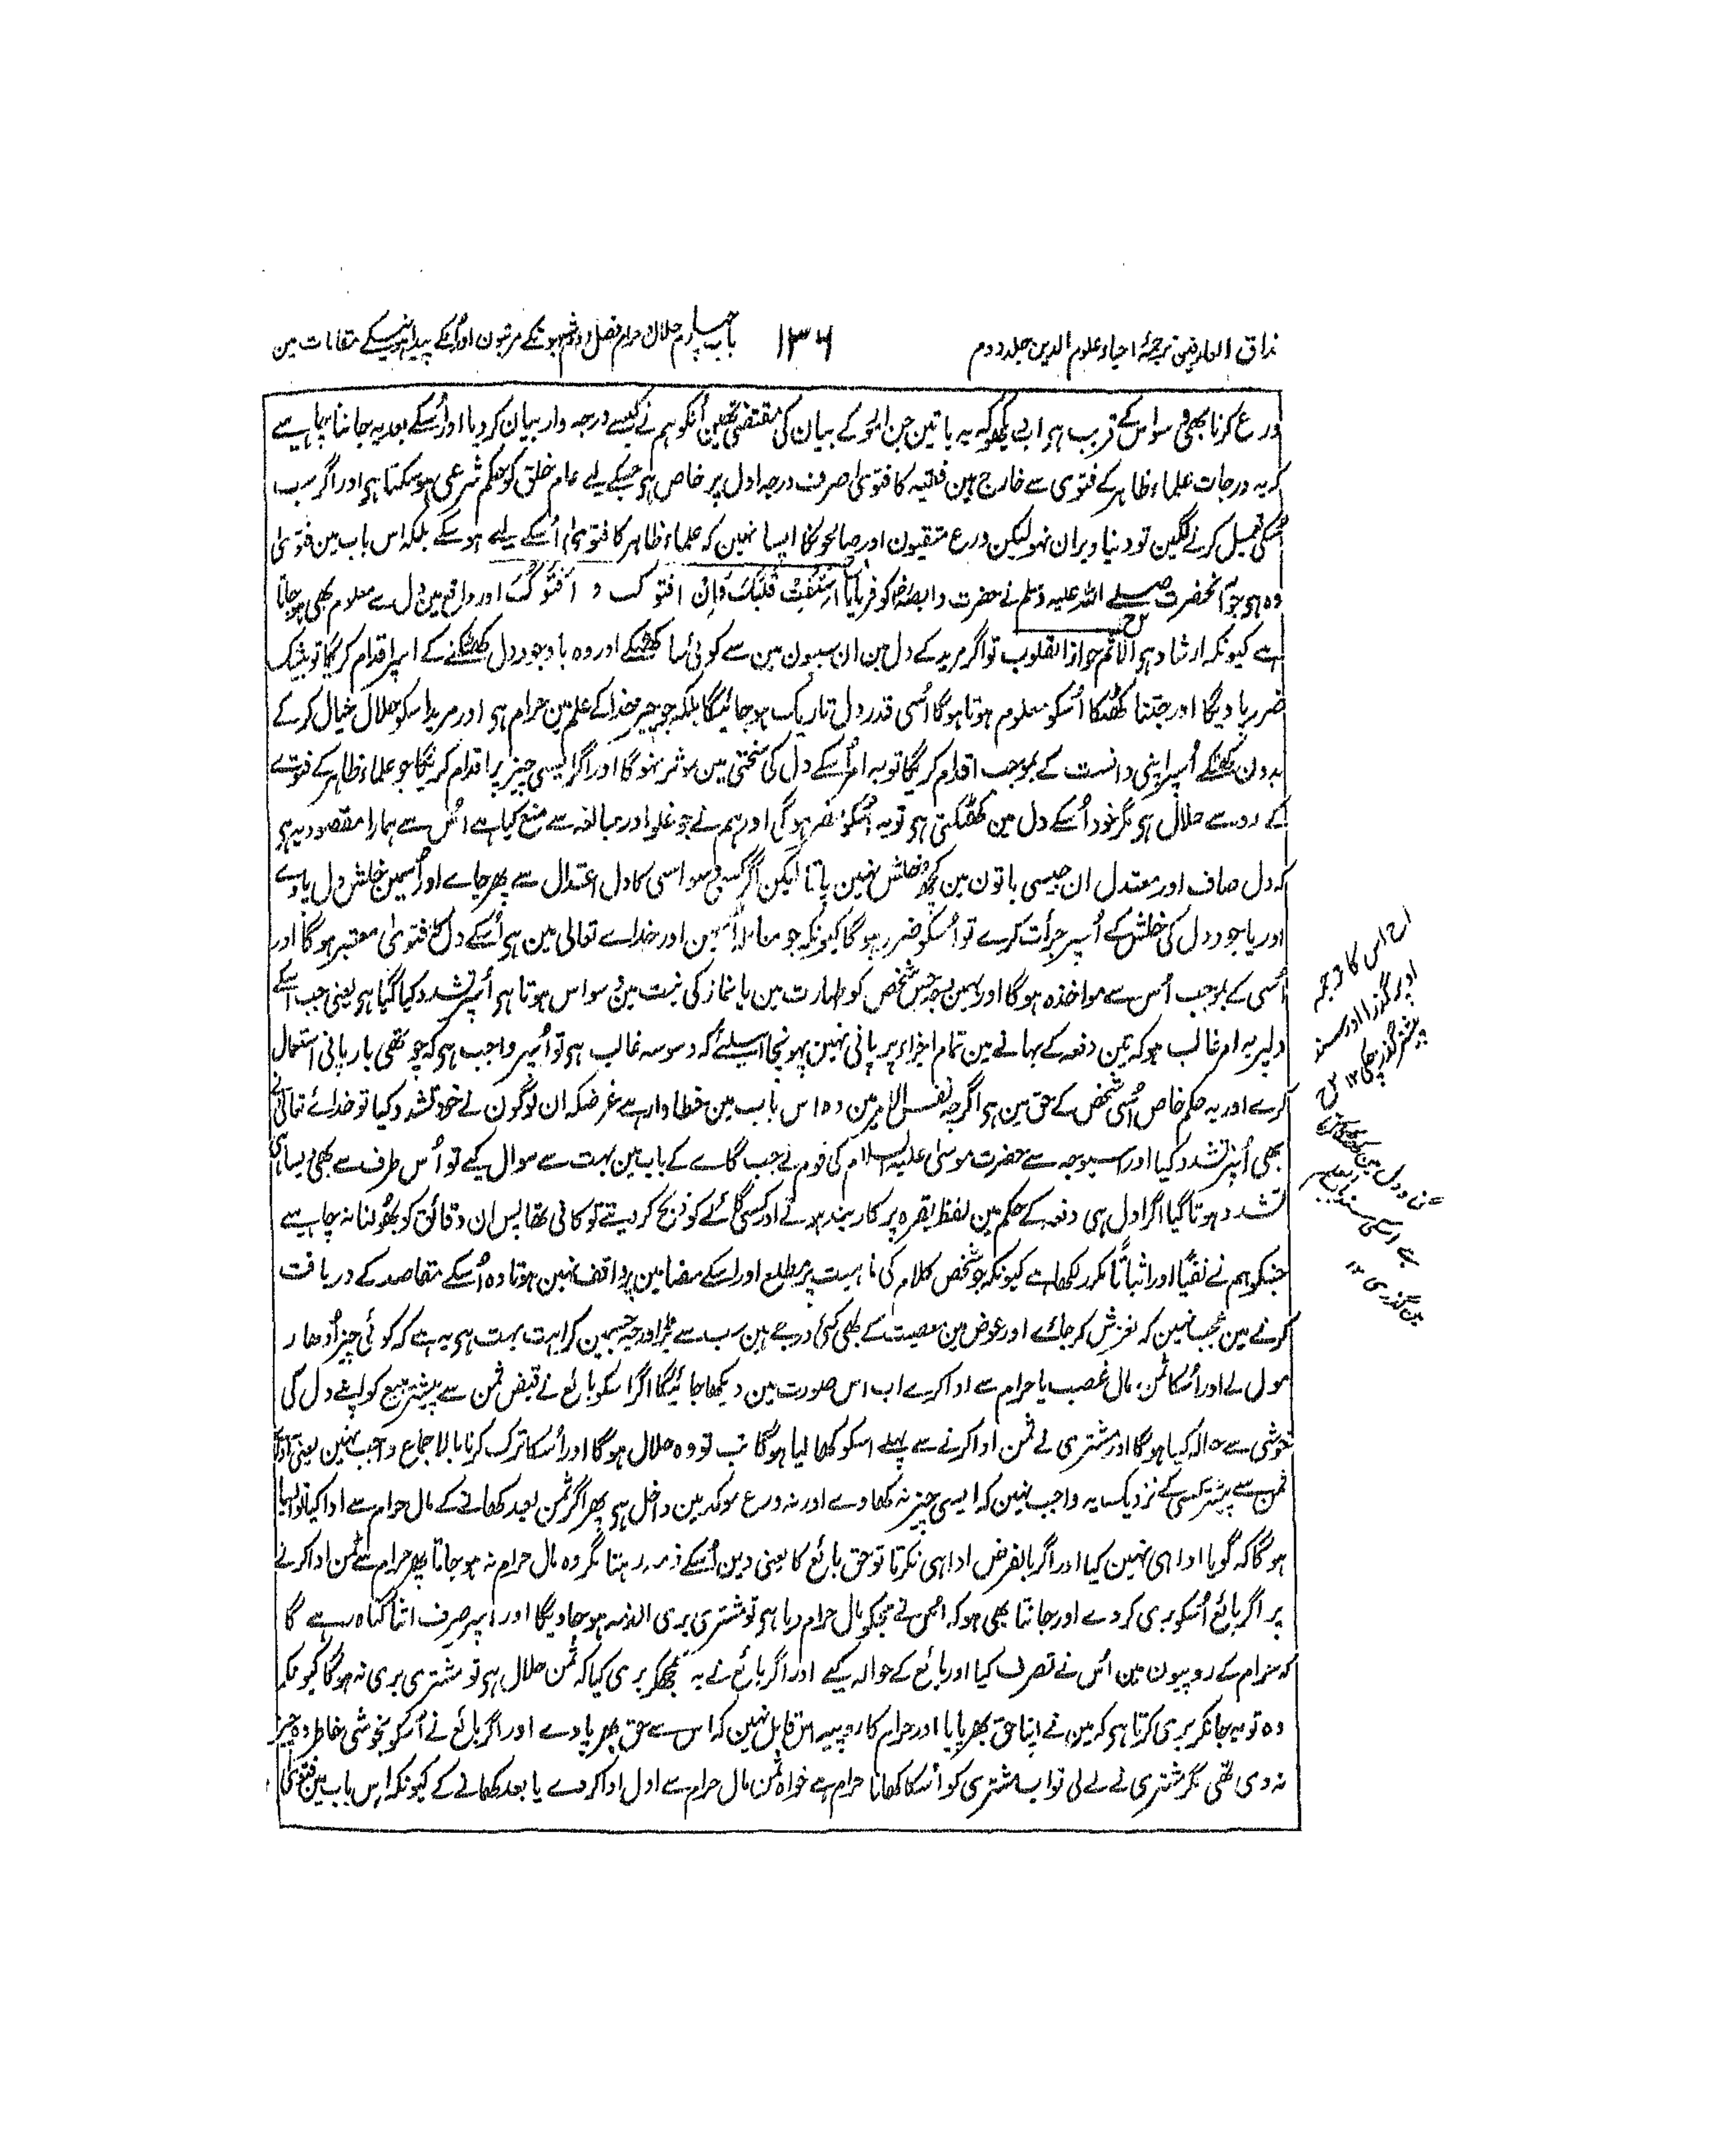 مذاق العارفین ترجمۂ احیاء علوم الدین جلد دوم
۱۳۶
باب چہارم حلال و حرام فصل دوم شبہونکے مرتبون اور اُنکے پیدا ہونیکے مقامات مین
ورع کرنا بھی وسواس کے قریب ہو اب دیکھو کہ یہ باتین جن امور کے بیان کی مقتضی تھین اُنکو ہم نے کیسے درجہ وار بیان کر دیا اور اُسکے بعد یہ جاننا چاہیے
کہ یہ درجات علماء ظاہر کے فتوی سے خارج ہین فقیہ کا فتوی صرف درجہ اول پر خاص ہو جسکے لیے عام خلق کو حکم شرعی ہو سکتا ہو اور اگر سب
اُسکی تعمیل کرنے لگین تو دنیا ویران نہو لیکن ورع متقیون اور صالحونکا ایسا نہین کہ علماء ظاہر کا فتوی اُسکے لیے ہو سکے بلکہ اس باب مین فتوی
وہ ہو جو آنحضرت صلے اللہ علیہ وسلم نے حضرت وابصہؓ کو فرمایا اِسْتَفْتِ قَلْبَکَ وَاِنْ افتوک و اَفْتَوْکَ اور واقع مین دل سے معلوم بھی ہو جاتا
ہے کیونکہ ارشاد ہو الاثم حواز القلوب تو اگر مرید کے دل مین ان سببون مین سے کوئی سا کھٹکے اور وہ باوجود دل کھٹکنے کے اُسپر اقدام کریگا تو بیشک
ضرر پاویگا اور جتنا کھٹکا اُسکو معلوم ہوتا ہوگا اُسی قدر دل تاریک ہو جائیگا بلکہ جو چیز خدا کے علم مین حرام ہو اور مرید اُسکو حلال خیال کرکے
بدون کھٹکے اُسپر اپنی دانست کے بموجب اقدام کریگا تو یہ امر اُسکے دل کی سختی مین موثر نہوگا اور اگر ایسی چیز پر اقدام کریگا جو علماء ظاہر کے فتوے
کے روسے حلال ہو مگر خود اُسکے دل مین کھٹکتی ہو تو یہ اُسکو مضر ہوگی اور ہم نے جو غلو اور مبالغہ سے منع کیا ہے اُس سے ہمارا مقصود یہ ہو
کہ دل صاف اور معتدل ان جیسی باتون مین کچھ خلش نہین پاتا لیکن اگر کسی وسواسی کا دل اعتدال سے پھر جاے اور اُسمین خلش دل پاوے
اور باوجود دل کی خلش کے اُسپر جرأت کرے تو اُسکو ضرر ہوگا کیونکہ جو معاملہ اُسمین اور خداے تعالی مین ہو اُسکے دل کا فتوی معتبر ہوگا اور
اُسی کے بموجب اُس سے مواخذہ ہوگا اور اسیوجہ سے جس شخص کو طہارت مین یا نماز کی نیت مین وسواس ہوتا ہو اُسپر تشدد کیا گیا ہو یعنی جب اُسکے
دلپر یہ امر غالب ہو کہ تین دفعہ کے بہانے مین تمام اجزاء پر پانی نہین پہونچا اسلیے کہ وسوسہ غالب ہو تو اُسپر واجب ہو کہ چوتھی بار پانی استعمال
کرے اور یہ حکم خاص اُسی شخص کے حق مین ہو اگرچہ نفس الامر مین وہ اس باب مین خطاوار ہے غرضکہ ان لوگون نے خود تشدد کیا تو خداے تعالی نے
بھی اُنپر تشدد کیا اور اسیوجہ سے حضرت موسیٰ علیہ السلام کی قوم نے جب گاے کے باب مین بہت سے سوال کیے تو اُس طرف سے بھی ویسا ہی
تشدد ہوتا گیا اگر اول ہی دفعہ کے حکم مین لفظ بقرہ پر کاربند ہوتے اور کسی گائے کو ذبح کر دیتے تو کافی تھا پس ان دقائق کو بھولنا نہ چاہیے
جنکو ہم نے نفیًا اور اثباتًا مکرر لکھا ہے کیونکہ جو شخص کلام کی ماہیت پر مطلع اور اسکے مضامین پر واقف نہین ہوتا وہ اُسکے مقاصد کے دریافت
کرنے مین عجب نہین کہ لغزش کر جاے اور عوض مین معصیت کے بھی کئی درجے ہین سب سے بڑا درجہ جسمین کراہت بہت ہو یہ ہے کہ کوئی چیز اُدھار
مول لے اور اُسکا ثمن مال غصب یا حرام سے ادا کرے اب اس صورت مین دیکھا جائیگا اگر اسکو بائع نے قبض ثمن سے پیشتر مبیع کو اپنے دل کی
خوشی سے حوالہ کیا ہوگا اور مشتری نے ثمن ادا کرنے سے پہلے اسکو کھا لیا ہوگا تب تو وہ حلال ہوگا اور اُسکا ترک کرنا بالاجماع واجب نہین یعنی ادا
ثمن سے پیشتر کسی کے نزدیک یہ واجب نہین کہ ایسی چیز نہ کھاوے اور نہ ورع موکد مین داخل ہو پھر اگر ثمن بعد کھانے کے مال حرام سے ادا کیا تو ایسا
ہوگا کہ گویا ادا ہی نہین کیا اور اگر بالفرض ادا ہی نکرتا تو حق بائع کا یعنی دین اُسکے ذمہ رہتا مگر وہ مال حرام نہ ہو جاتا پھر حرام سے ثمن ادا کرنے
پر اگر بائع اُسکو بری کردے اور جانتا بھی ہو کہ اُس نے مجکو مال حرام دیا ہو تو مشتری بری الذمہ ہو جاویگا اور اُسپر صرف اتنا گناہ رہے گا
کہ حرام کے روپیون مین اُس نے تصرف کیا اور بائع کے حوالہ کیے اور اگر بائع نے یہ سمجھکر بری کیا کہ ثمن حلال ہو تو مشتری بری نہ ہوگا کیونکہ
وہ تو یہ جانکر بری کرتا ہو کہ مین نے اپنا حق بھر پایا اور حرام کا روپیہ اس قابل نہین کہ اس سے حق بھر پاوے اور اگر بائع نے اُسکو بخوشی خاطر وہ چیز
نہ دی تھی مگر مشتری نے لے لی تو اب مشتری کو اُسکا کھانا حرام ہے خواہ ثمن مال حرام سے اول ادا کردے یا بعد کھانے کے کیونکہ اس باب مین فتوی
اس کا ترجمہ
اوپر گذرا اور سند
پیشتر گذر چکی ۱۲
ہے اسکی سند
مین گذری ۱۲